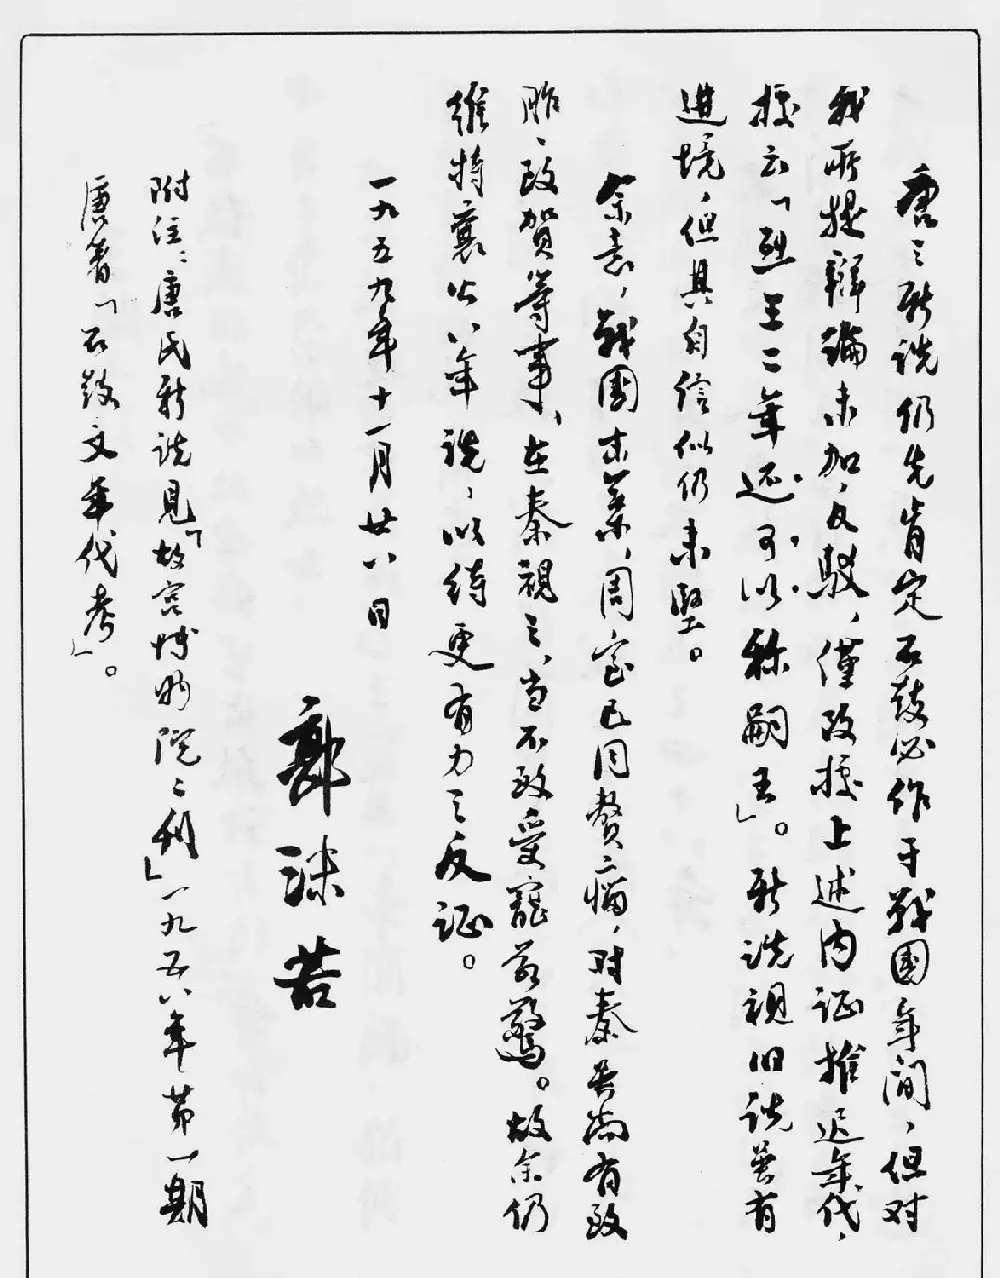 唐之新说仍先肯定石鼓必作于战国年间，但对
我所提辩论未加反驳，仅改据上述内证推迟年代，
据云「烈王二年还可以称嗣王」。新说视旧说虽有
进境，但其自信似仍未坚。
余意，战国末叶，周室已同赘瘤，对秦虽尚有致
胙、致贺等事，在秦视之，当不致受宠若惊。故余仍
维持襄公八年说，以待更有力之反证。
一九五九年十一月廿八日
郭沫若
附注：唐氏新说见「故宫博物院院刊」一九五八年第一期
唐著「石鼓文年代考」。